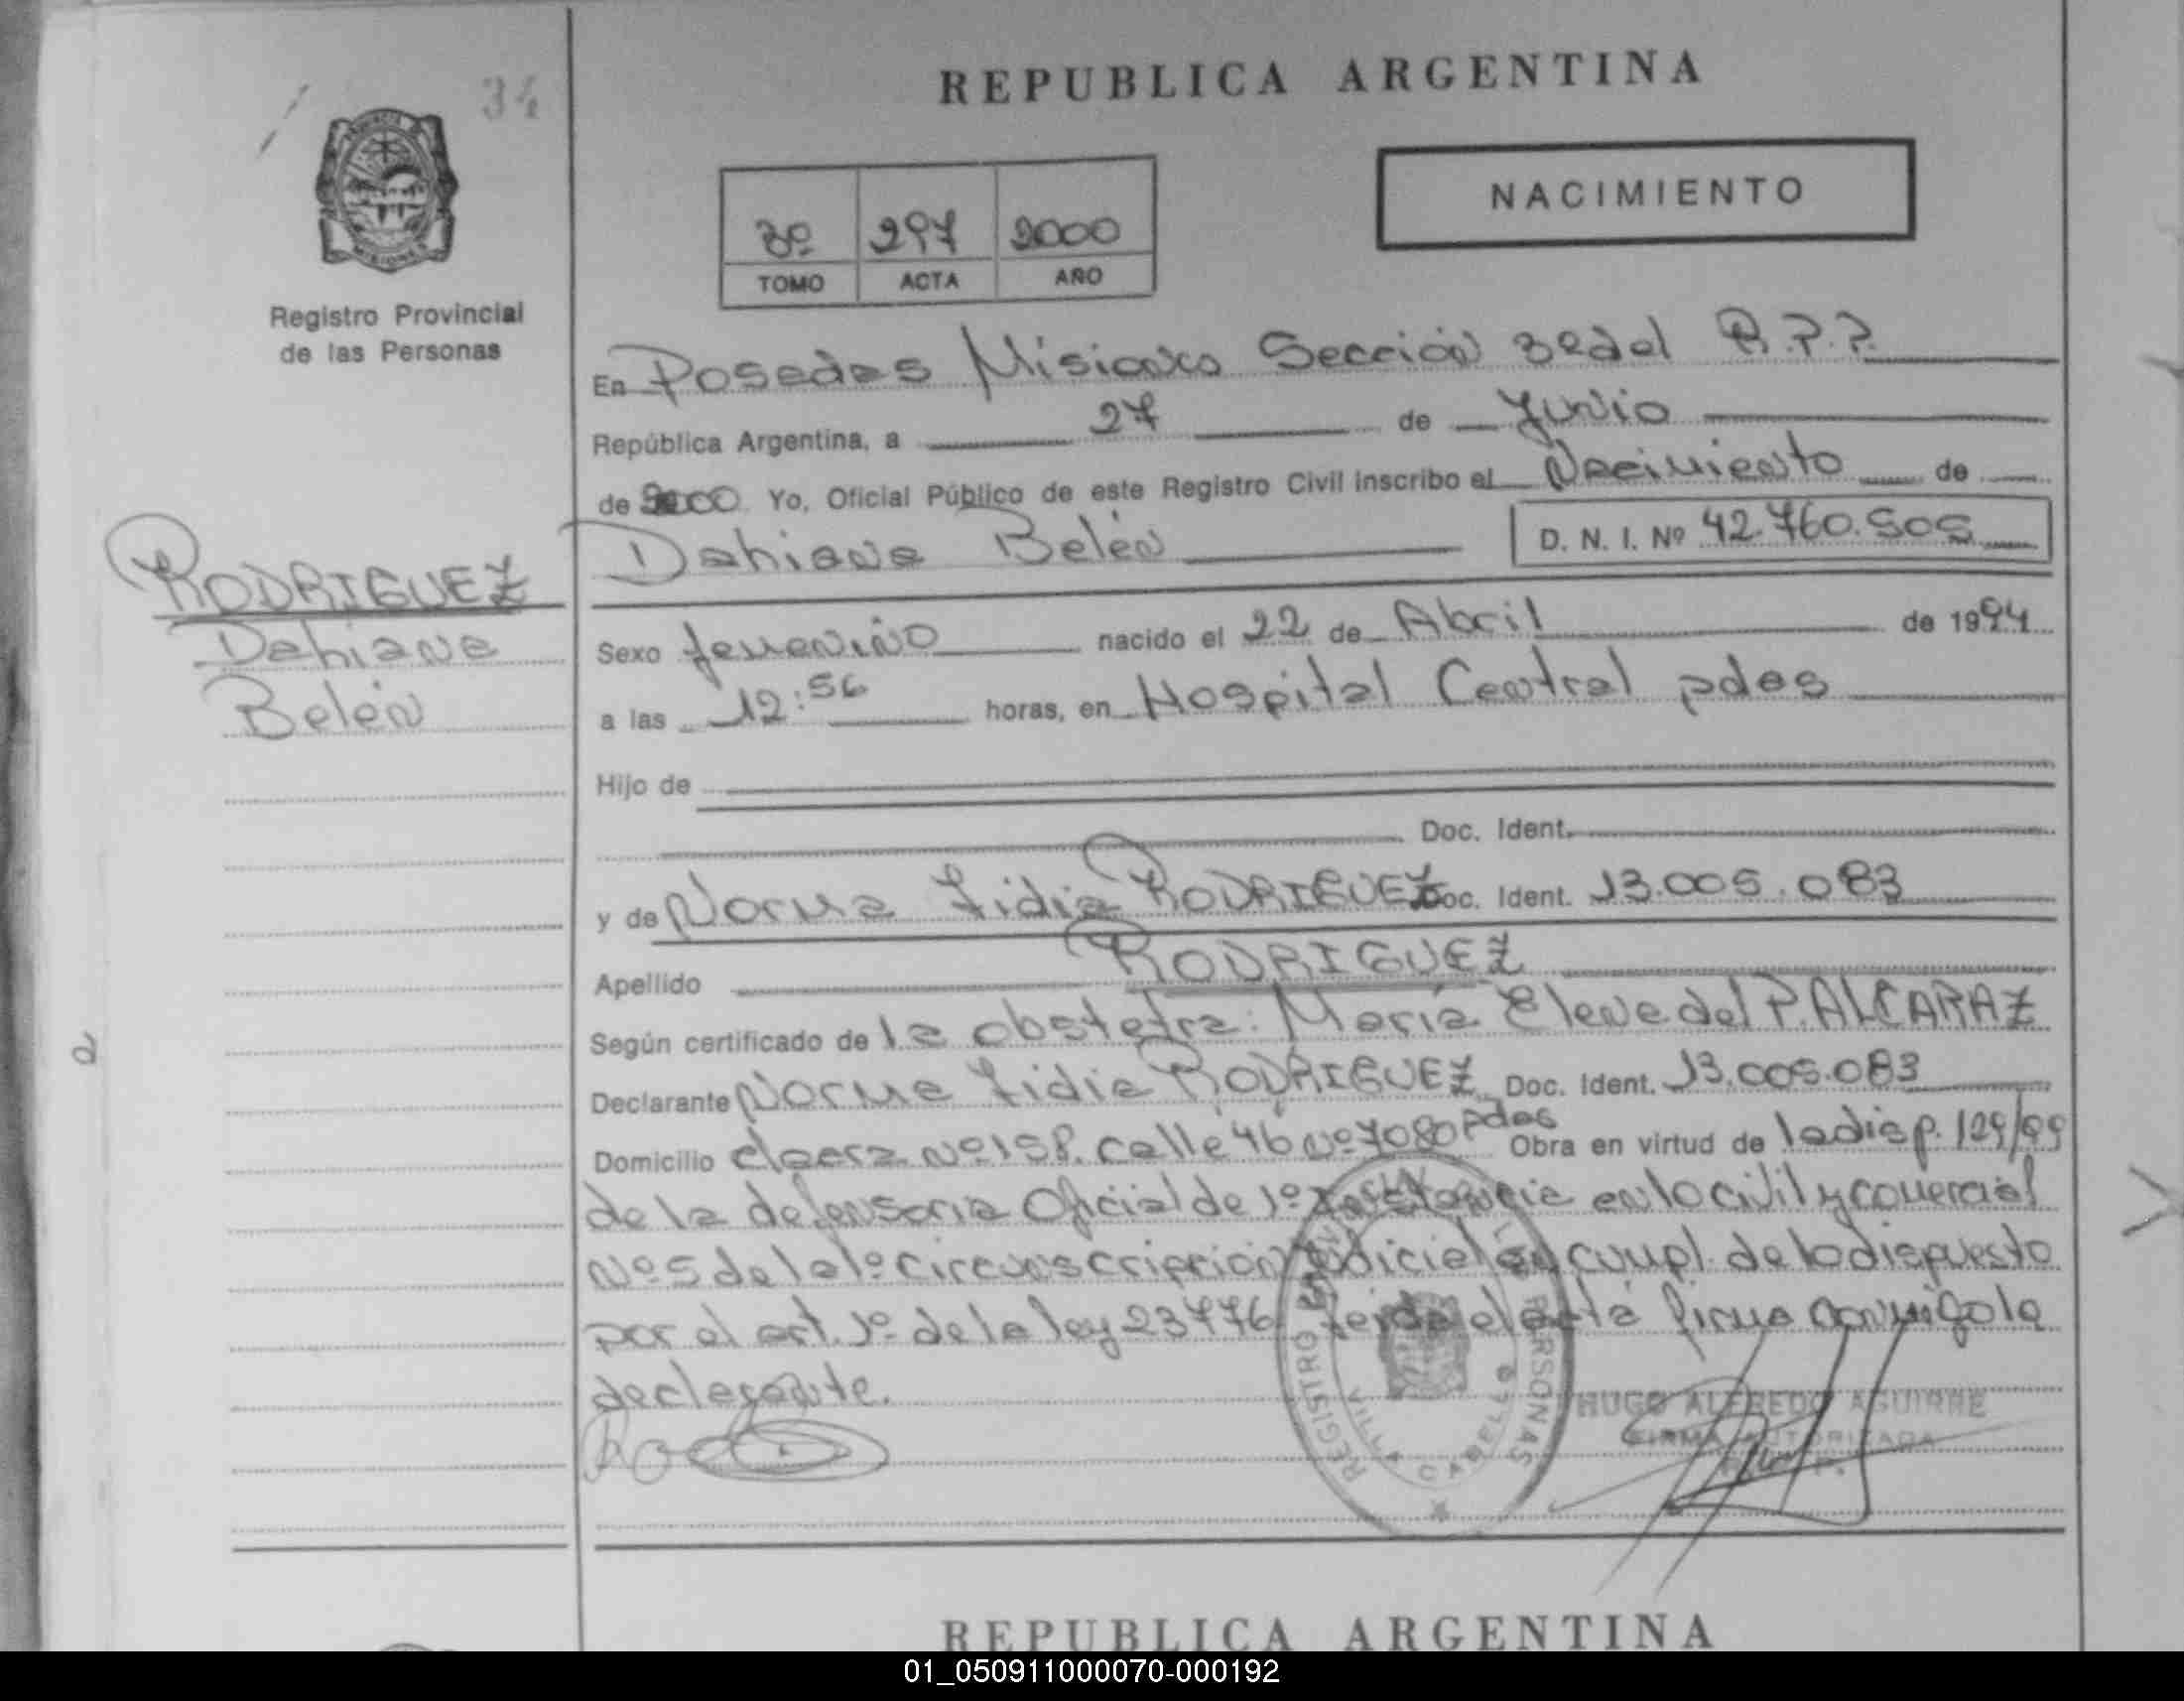 34
REPUBLICA ARGENTINA
NACIMIENTO
3º 297 2000
TOMO ACTA AÑO
Registro Provincial
de las Personas
En Posadas Misiones Sección 3ª del R.P.P.
República Argentina, a 27 de Junio
de 2000 Yo, Oficial Público de este Registro Civil inscribo el Nacimiento de
Dahiana Belén D. N. I. Nº 42.760.505
RODRIGUEZ
Dahiana
Belén
Sexo femenino nacido el 22 de Abril de 1994
a las 12:56 horas, en Hospital Central pdas
Hijo de
Doc. Ident.
y de Norma Lidia RODRIGUEZ Doc. Ident. 13.005.083
Apellido RODRIGUEZ
Según certificado de la obstetra: María Elena del P. ALCARAZ
Declarante Norma Lidia RODRIGUEZ Doc. Ident. 13.005.083
Domicilio chacra Nº 158. calle 46 Nº 7080 Pdas Obra en virtud de la disp. 129/99
de la defensoria Oficial de 1º Instancia en lo civil y comercial
Nº 5 de la 1º circunscripción judicial en cumpl. de lo dispuesto
por el art. 1º de la ley 23776 leida el acta firma conmigo la
declarante.
REGISTRO PERSONAS
VILLA CABELLO
HUGO ALFREDO AGUIRRE
FIRMA AUTORIZADA
REPUBLICA ARGENTINA
01_050911000070-000192